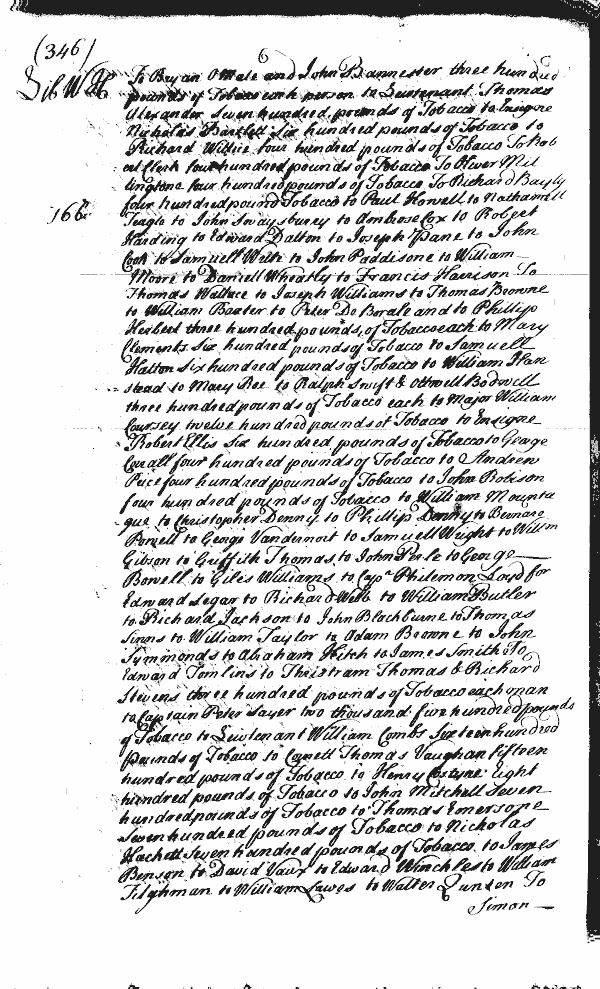 (346)
6
Lib W H
To Bryan Omale and John Bannester three hundred
pounds of Tobacco each person to Lieutenant Thomas
Alexander Seven hundred pounds of Tobacco to Ensigne
Nicholas Bartlett Six hundred pounds of Tobacco to
Richard Willie four hundred pounds of Tobacco To Rob
ert Clerk four hundred pounds of Tobacco To Oliver Mil
lingtone four hundred pounds of Tobacco To Richard Bayly
four hundred pound Tobacco to Paul Howell to Nathaniell
166
Teagle to John Swaysburry to Ambrose Cox to Robert
Harding to Edward Dalton to Joseph Pane to John
Cook to Samuell to John Paddisone to William
Moore to Daniell Wheatly to Francis Harrison To
Thomas Wallace to Joseph Williams to Thomas Browne
to William Baxter to Peter Do Borale and to Phillip
Herbert three hundred pounds of Tobacco each to Mary
Clements Six hundred pounds of Tobacco to Samuell
Hatton Six hundred pounds of Tobacco to William Han
stead to Mary Roe to Ralph Swift & Othwell Bodwell
three hundred pounds of Tobacco each to Major William
Coursey twelve hundred pounds of Tobacco to Ensigne
Robert Ellis Six hundred pounds of Tobacco to George
Cowall four hundred pounds of Tobacco to Andrew
Price four hundred pounds of Tobacco to John Bobson
four hundred pounds of Tobacco to William Mounta
gue to Christopher Denny to Phillip Denny to Bernard
Powell to George Vandernoit to Samuell Wright to Willm
Gibson to Griffith Thomas to John Perle to George
Bowell to Giles Williams to Capn Philemon Loyd for
Edward Segar to Richard Webb to William Butler
to Richard Jackson to John Blackburne to Thomas
Sinns to William Taylor to Adam Browne to John
Symmonds to Abraham Hitch to James Smith To
Edward Tomlins to Thristram Thomas & Richard
Stevens three hundred pounds of Tobacco each man
to Captain Peter Sayer two thousand five hundred pounds
of Tobacco to Lieutenant William Combs Sixteen hundred
pounds of Tobacco to Cornett Thomas Vaughan fifteen
hundred pounds of Tobacco to Henry Costyne Eight
hundred pounds of Tobacco to John Mitchell Seven
hundred pounds of Tobacco to Thomas Emersone
Seven hundred pounds of Tobacco to Nicholas
Hackett Seven hundred pounds of Tobacco to James
Benson to David Vaux to Edward Winckles to William
Tilghman to William Lawes to Walter Quinten To
Simon